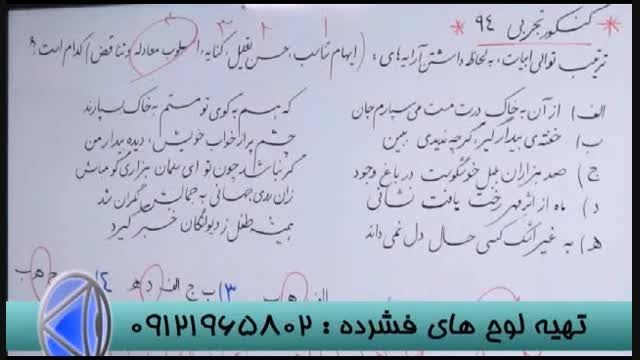 * کنکور تجربی ۹۴ *
۱ ۲ ۳
ترتیب توالی ابیات، به لحاظ داشتن آرایه های: (ایهام تناسب، حسن تعلیل، کنایه، اسلوب معادله و تناقض) کدام است؟
الف) از آن به خاک درت مست می سپارم جان که هم به کوی تو مستم به خاک بسپارند
ب) خفته ی بیدار گیر، گرچه ندیدی ببین چشم پر از خواب خویش، دیده بیدار من
ج) صد هزاران بلبل خوشگوست در باغ وجود گر نباشد چون تو ای سلمان هزاری گو مباش
د) ماه از اثر مهر رخت یافت نشانی زان روی جهانی به جمالش نگران شد
ه) به غیر اشک کسی حال دل نمی داند همیشه طفل ز دیوانگان خبر گیرد
الف ه ب ۳) ب ج الف د ه ۴) ج ه ب
تهیه لوح های فشرده : ۰۹۱۲۱۹۶۵۸۰۲